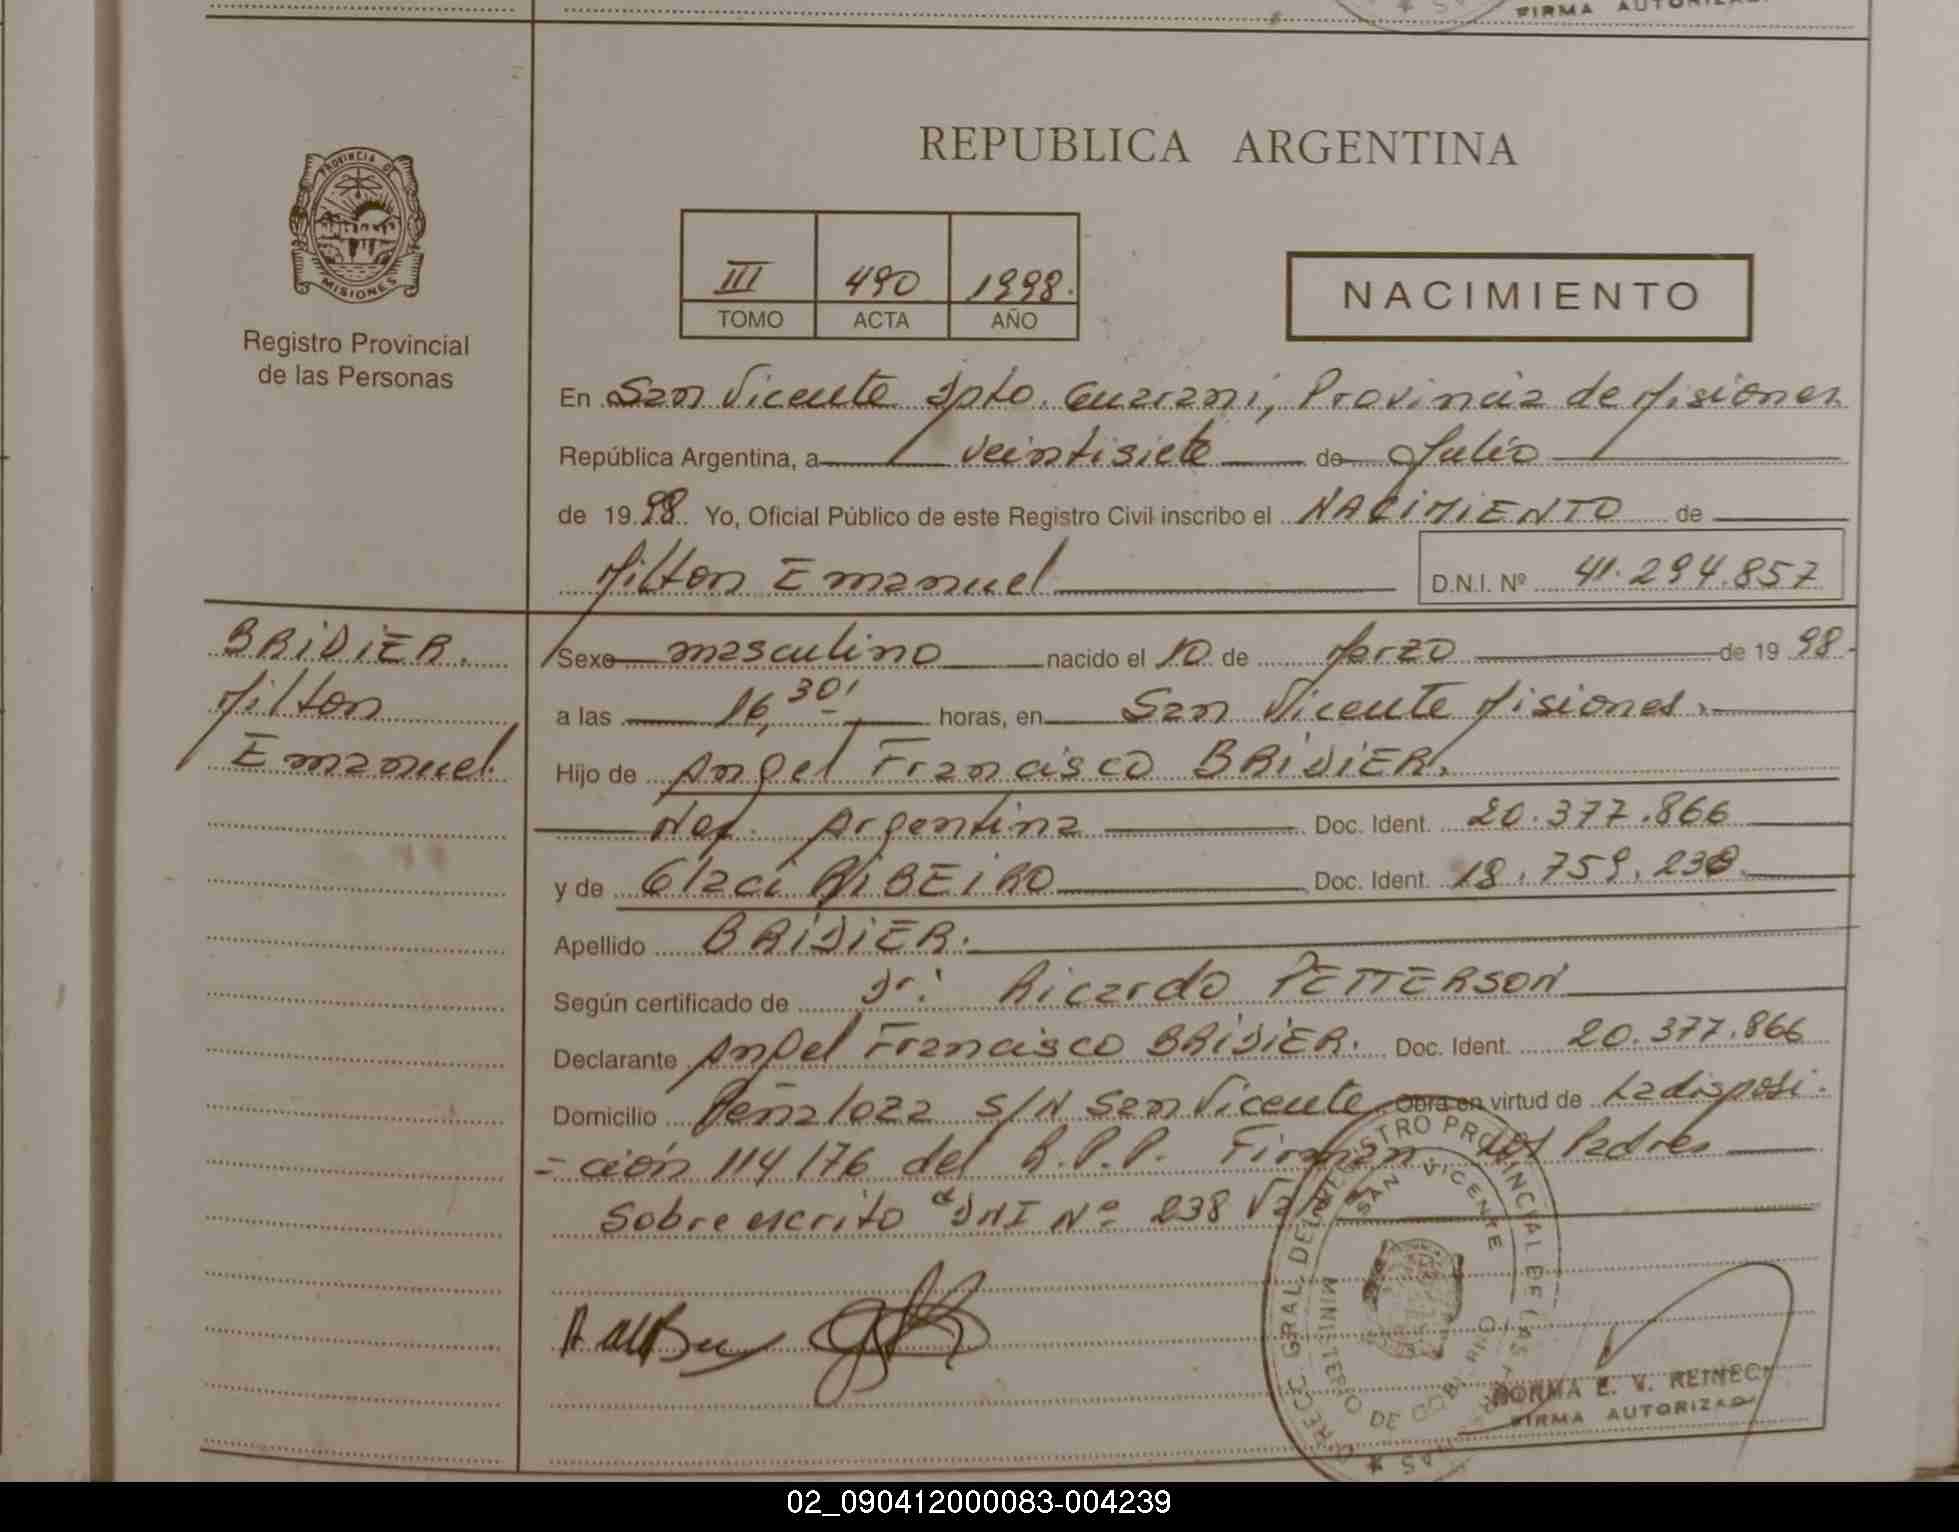 FIRMA AUTORIZADA
PROVINCIA DE
MISIONES
Registro Provincial
de las Personas
REPUBLICA ARGENTINA
III 490 1998.
TOMO ACTA AÑO
NACIMIENTO
En San Vicente Dpto. Guarani, Provincia de Misiones
República Argentina, a veintisiete de Julio
de 1998. Yo, Oficial Público de este Registro Civil inscribo el NACIMIENTO de
Milton Emanuel D.N.I. Nº 41.294.857
BRIDIER.
Milton
Emanuel
Sexo masculino nacido el 10 de Marzo de 1998.
a las 16,30 horas, en San Vicente Misiones.
Hijo de Angel Francisco BRIDIER.
Nac. Argentina Doc. Ident. 20.377.866
y de Glaci RIBEIRO Doc. Ident. 18.759.238
Apellido BRIDIER.
Según certificado de Dr. Ricardo PETTERSON
Declarante Angel Francisco BRIDIER. Doc. Ident. 20.377.866
Domicilio Peñaloza S/N San Vicente Obra en virtud de La disposi-
=ción 114/76 del R.P.P. Firman los Padres
Sobre escrito "DNI Nº 238 Vale
DIRECC. GRAL. DEL REGISTRO PROVINCIAL DE LAS PERSONAS
SAN VICENTE
MINISTERIO DE GOBIERNO
NORMA E. V. REINECK
FIRMA AUTORIZADA
02_090412000083-004239